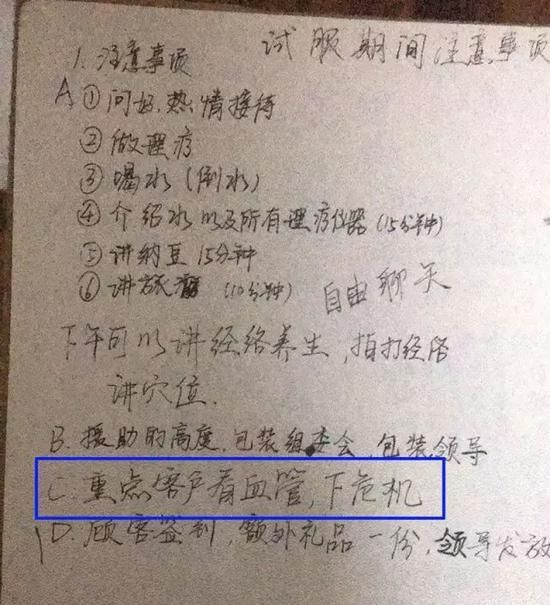 试服期间注意事项
1. 注意事项
A ① 问好.热情接待
② 做理疗
③ 喝水(倒水)
④ 介绍水以及所有理疗仪器(15分钟)
⑤ 讲纳豆 15分钟
⑥ 讲 (10分钟) 自由聊天
下午可以讲经络养生,拍打经络
讲穴位.
B. 援助的高度,包装组委会,包装领导
C. 重点客户看血管,下危机
D. 顾客签到,额外礼品一份,领导发放